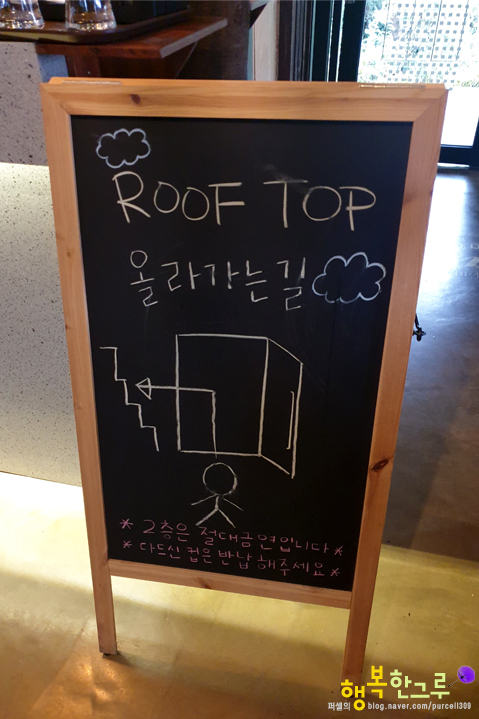 ROOF TOP
올라가는길
* 2층은 절대금연입니다 *
* 다드신 컵은 반납해주세요 *
행복한그루
퍼셀의 blog.naver.com/purcell309